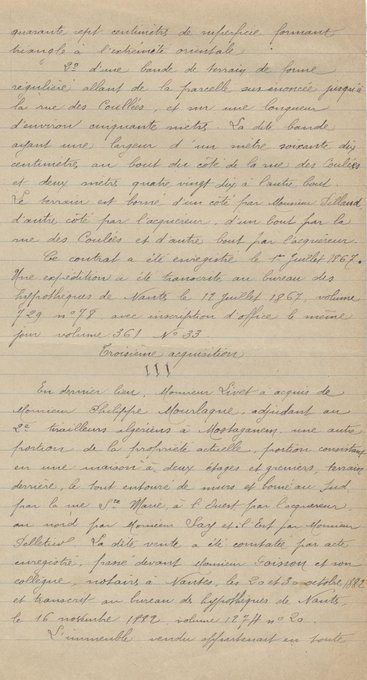 quarante sept centimètres de superficie formant
triangle à l'extrémité orientale
2o d'une bande de terrain de forme
régulière allant de la parcelle susénoncée jusqu'à
la rue des Coulées, et sur une longueur
d'environ cinquante mètres. La dite bande
ayant une largeur d'un mètre soixante dix
centimètres au bout du côté de la rue des Coulées
et deux mètres quatre vingt dix à l'autre bout
Le terrain est borné d'un côté par Monsieur
d'autre côté par l'acquéreur, d'un bout par la
rue des Coulées et d'autre bout par l'acquéreur.
Ce contrat a été enregistré le 1er Juillet 1867.
Une expédition a été transcrite au bureau des
hypothèques de Nantes le 12 Juillet 1867, volume
729 no 78 avec inscription d'office le même
jour volume 361 No 33
Troisième acquisition
En dernier lieu, Monsieur Livet a acquis de
Monsieur Philippe Mourlagne, adjudant au
2e tirailleurs algériens à Mostaganem, une autre
portion de la propriété actuelle, portion consistant
en une maison à deux étages et greniers, terrain
derrière, le tout entouré de murs et borné au Sud
par la rue Ste Marie, à l'Ouest par l'acquéreur
au nord par Monsieur Say et à l'Est par Monsieur
Pelletier. La dite vente a été constatée par acte
enregistré, passé devant Monsieur Poisson et son
collègue, notaires à Nantes, les 20 et 30 octobre 1882
et transcrit au bureau des hypothèques de Nantes,
le 16 novembre 1882, volume no 20.
L'immeuble vendu appartenait en toute